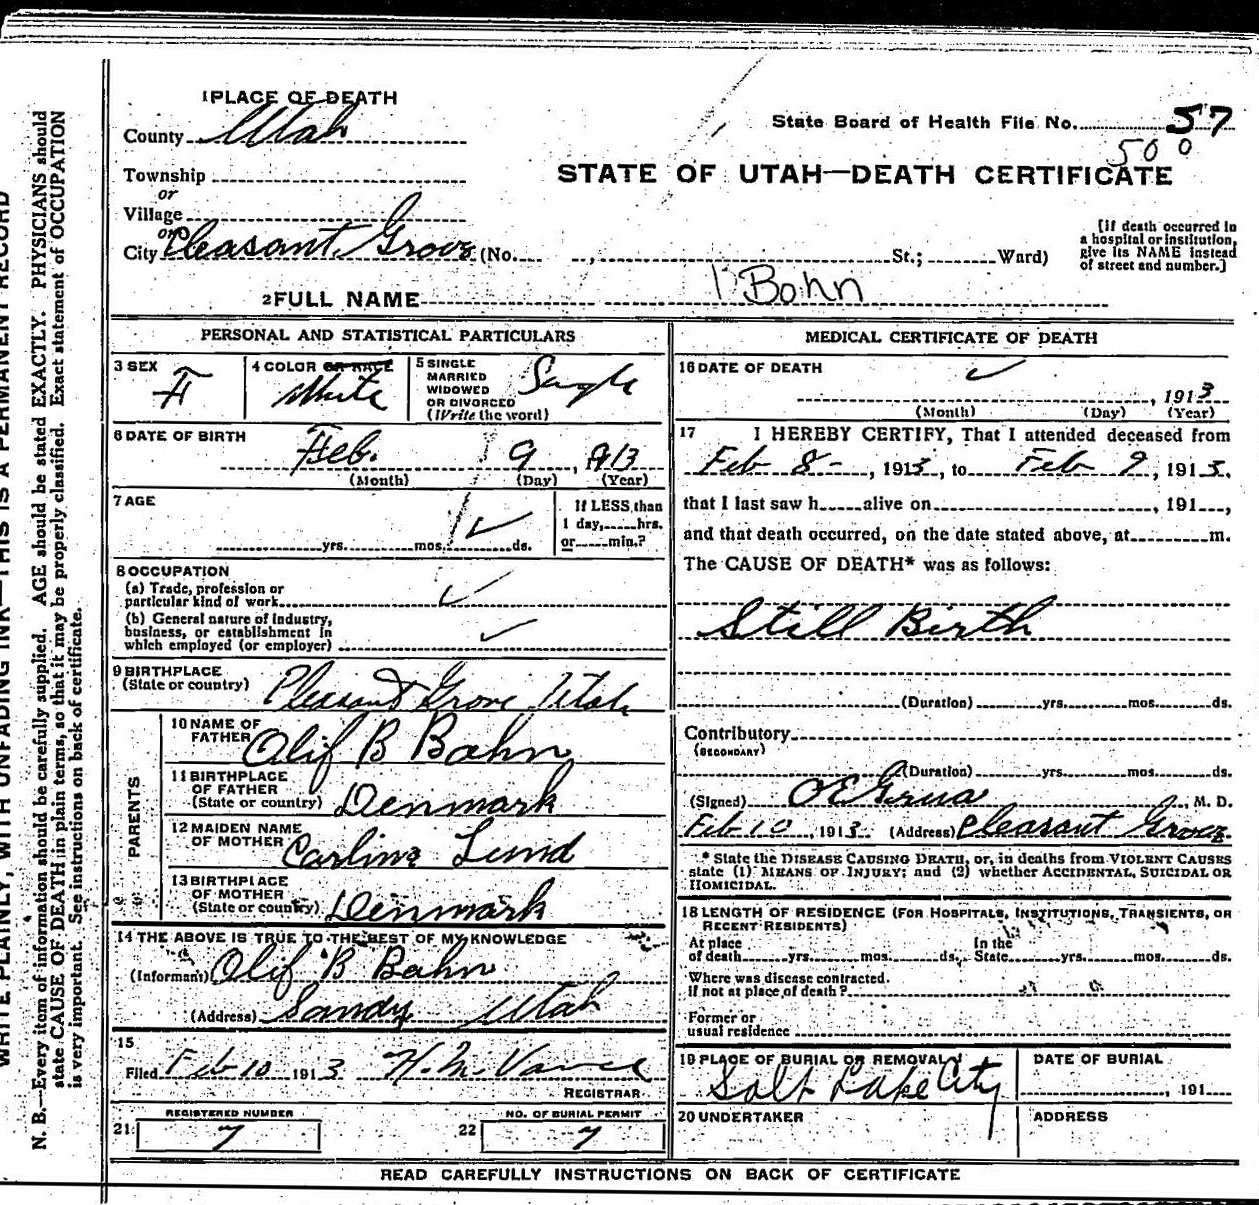 1 PLACE OF DEATH
County Utah
State Board of Health File No. 57
500
Township
or
Village
or
City Pleasant Grove (No. , St.; Ward)
STATE OF UTAH—DEATH CERTIFICATE
[If death occurred in
a hospital or institution,
give its NAME instead
of street and number.]
2 FULL NAME Bohn
PERSONAL AND STATISTICAL PARTICULARS
3 SEX
F
4 COLOR OR RACE
White
5 SINGLE
MARRIED
WIDOWED
OR DIVORCED
(Write the word)
Single
6 DATE OF BIRTH
Feb. 9, 1913
(Month) (Day) (Year)
7 AGE
yrs. mos. ds.
If LESS than
1 day, hrs.
or min.?
8 OCCUPATION
(a) Trade, profession or
particular kind of work
(b) General nature of industry,
business, or establishment in
which employed (or employer)
9 BIRTHPLACE
(State or country) Pleasant Grove Utah
PARENTS
10 NAME OF
FATHER Olif B Bahn
11 BIRTHPLACE
OF FATHER
(State or country) Denmark
12 MAIDEN NAME
OF MOTHER Carline Lund
13 BIRTHPLACE
OF MOTHER
(State or country) Denmark
14 THE ABOVE IS TRUE TO THE BEST OF MY KNOWLEDGE
(Informant) Olif B Bahn
(Address) Sandy Utah
15
Filed Feb 10 1913 H. M. Vance
REGISTRAR
REGISTERED NUMBER
21 7
NO. OF BURIAL PERMIT
22 7
MEDICAL CERTIFICATE OF DEATH
16 DATE OF DEATH
, 1913
(Month) (Day) (Year)
17 I HEREBY CERTIFY, That I attended deceased from
Feb 8-, 1913, to Feb 9, 1913.
that I last saw h alive on , 191 ,
and that death occurred, on the date stated above, at m.
The CAUSE OF DEATH* was as follows:
Still Birth
(Duration) yrs. mos. ds.
Contributory
(SECONDARY)
(Duration) yrs. mos. ds.
(Signed) O E Grua, M. D.
Feb 10, 1913. (Address) Pleasant Grove
* State the DISEASE CAUSING DEATH, or, in deaths from VIOLENT CAUSES
state (1) MEANS OF INJURY; and (2) whether ACCIDENTAL, SUICIDAL OR
HOMICIDAL.
18 LENGTH OF RESIDENCE (FOR HOSPITALS, INSTITUTIONS, TRANSIENTS, OR
RECENT RESIDENTS)
At place
of death yrs. mos. ds.
In the
State yrs. mos. ds.
Where was disease contracted,
if not at place of death?
Former or
usual residence
19 PLACE OF BURIAL OR REMOVAL
Salt Lake City
DATE OF BURIAL
, 191
20 UNDERTAKER
ADDRESS
READ CAREFULLY INSTRUCTIONS ON BACK OF CERTIFICATE
WRITE PLAINLY, WITH UNFADING INK—THIS IS A PERMANENT RECORD
N. B.—Every item of information should be carefully supplied. AGE should be stated EXACTLY. PHYSICIANS should
state CAUSE OF DEATH in plain terms, so that it may be properly classified. Exact statement of OCCUPATION
is very important. See instructions on back of certificate.